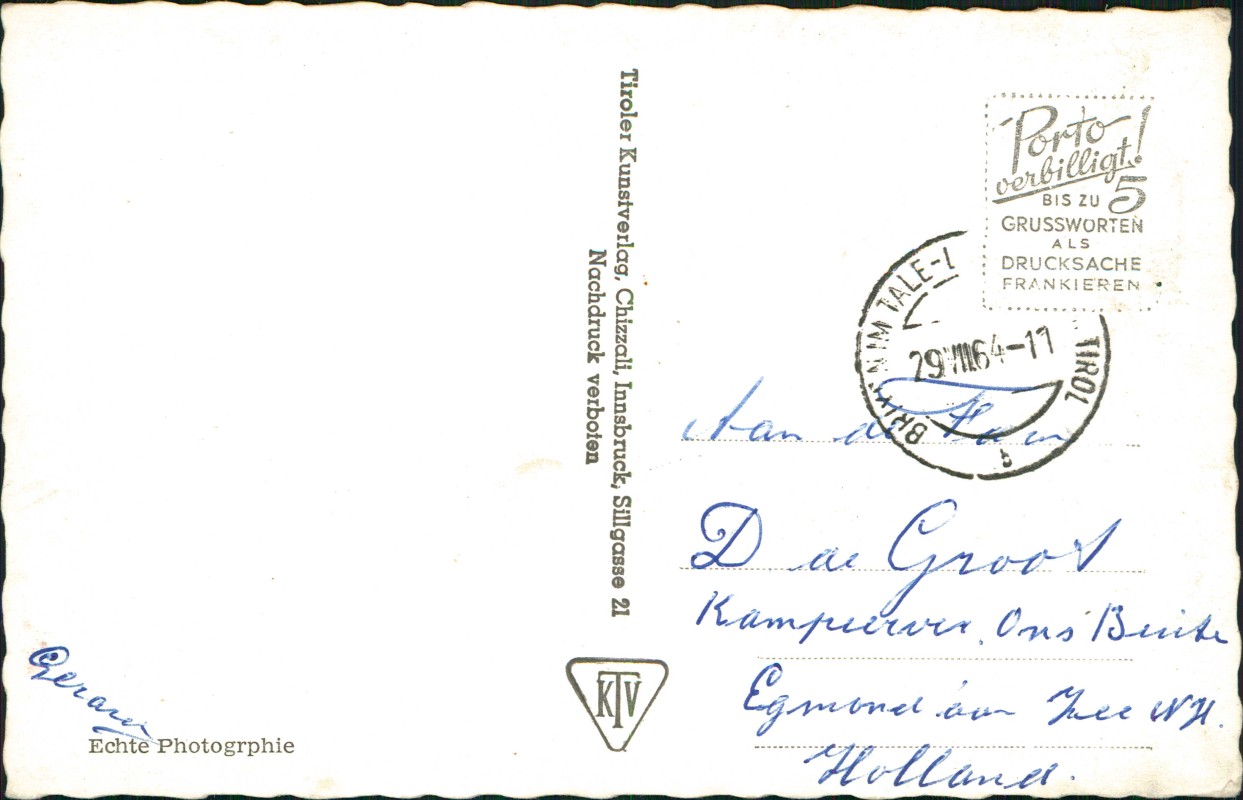 Porto
verbilligt!
BIS ZU 5
GRUSSWORTEN
ALS
DRUCKSACHE
FRANKIEREN
IM TALE-
TIROL
29.VIII.64-11
Tiroler Kunstverlag, Chizzali, Innsbruck, Sillgasse 21
Nachdruck verboten
Aan de Fam
D de Groot
Kampeerver. Ons Buiten
Egmond aan Zee NH.
Holland.
Gerard
Echte Photogrphie
KTV